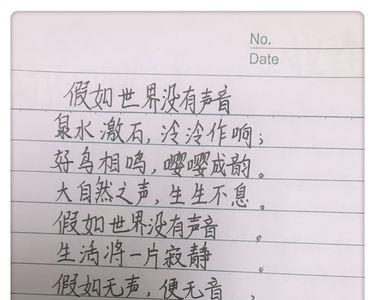 No.
Date
假如世界没有声音
泉水激石,泠泠作响;
好鸟相鸣,嘤嘤成韵。
大自然之声,生生不息。
假如世界没有声音。
生活将一片寂静。
假如无声,便无音,